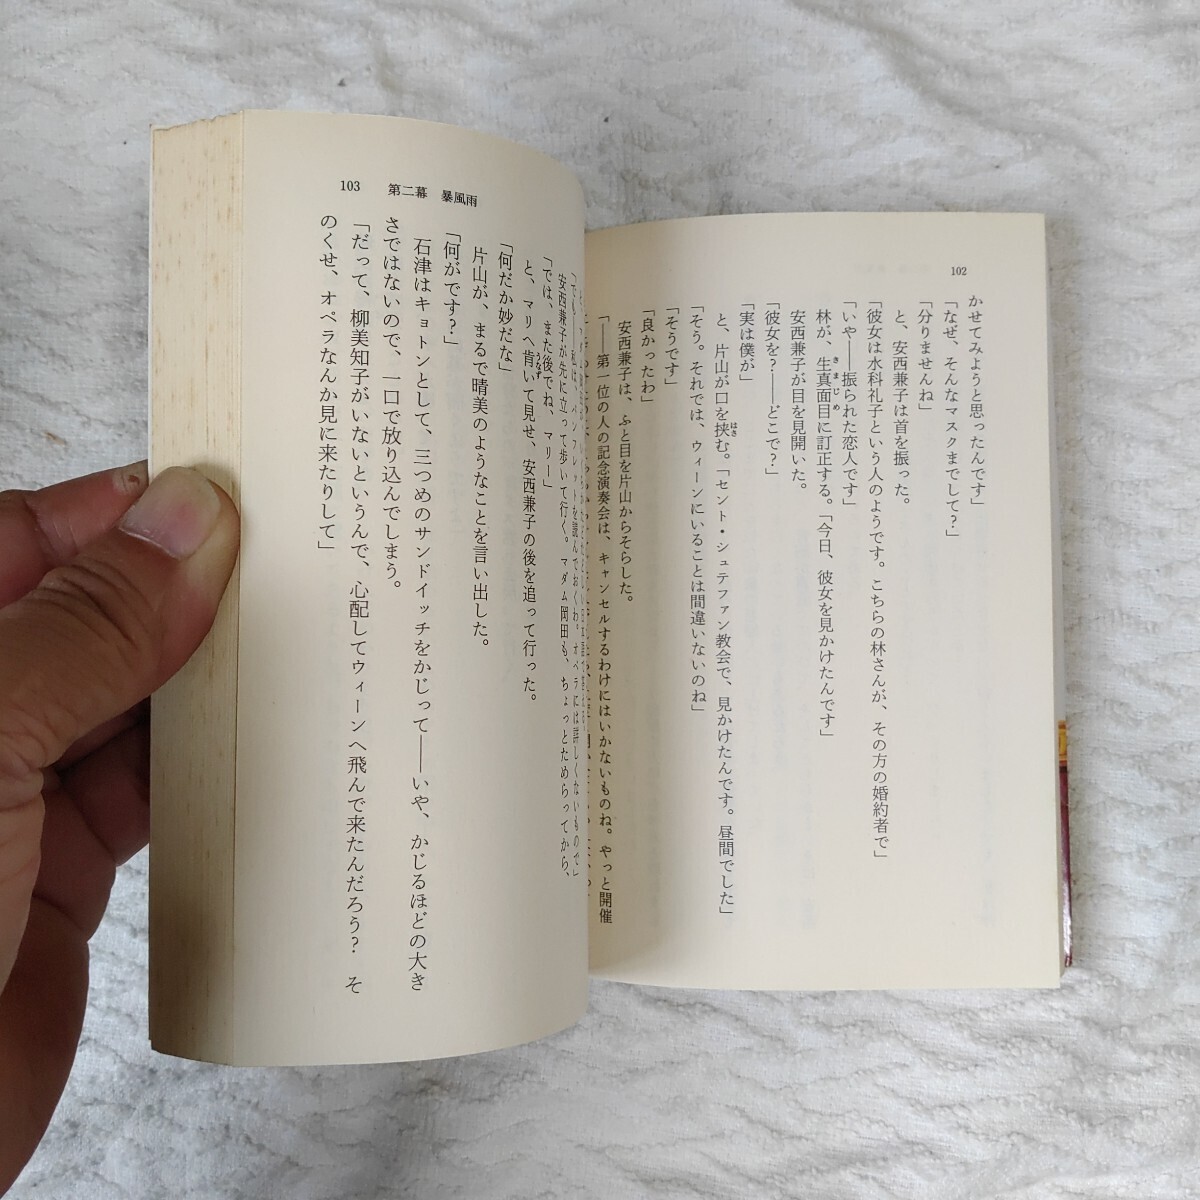 102
かせてみようと思ったんです」
「なぜ、そんなマスクまでして?」
「分りませんね」
と、安西兼子は首を振った。
「彼女は水科礼子という人のようです。こちらの林さんが、その方の婚約者で」
「いや――振られた恋人です」
林が、生真面目に訂正する。「今日、彼女を見かけたんです」
きまじめ
安西兼子が目を見開いた。
「彼女を?――どこで?」
「実は僕が」
と、片山が口を挟む。「セント・シュテファン教会で、見かけたんです。昼間でした」
はさ
「そう。それでは、ウィーンにいることは間違いないのね」
「そうです」
「良かったわ」
安西兼子は、ふと目を片山からそらした。
「――第一位の人の記念演奏会は、キャンセルするわけにはいかないものね。やっと開催
103 第二幕 暴風雨
私は、パンフレットを読んでおくわ。オペラには詳しくないもので」
安西兼子が先に立って歩いて行く。マダム岡田も、ちょっとためらってから、
「では、また後でね、マリー」
と、マリへ肯いて見せ、安西兼子の後を追って行った。
うなず
「何だか妙だな」
片山が、まるで晴美のようなことを言い出した。
「何がです?」
石津はキョトンとして、三つめのサンドイッチをかじって――いや、かじるほどの大き
さではないので、一口で放り込んでしまう。
「だって、柳美知子がいないというんで、心配してウィーンへ飛んで来たんだろう? そ
のくせ、オペラなんか見に来たりして」